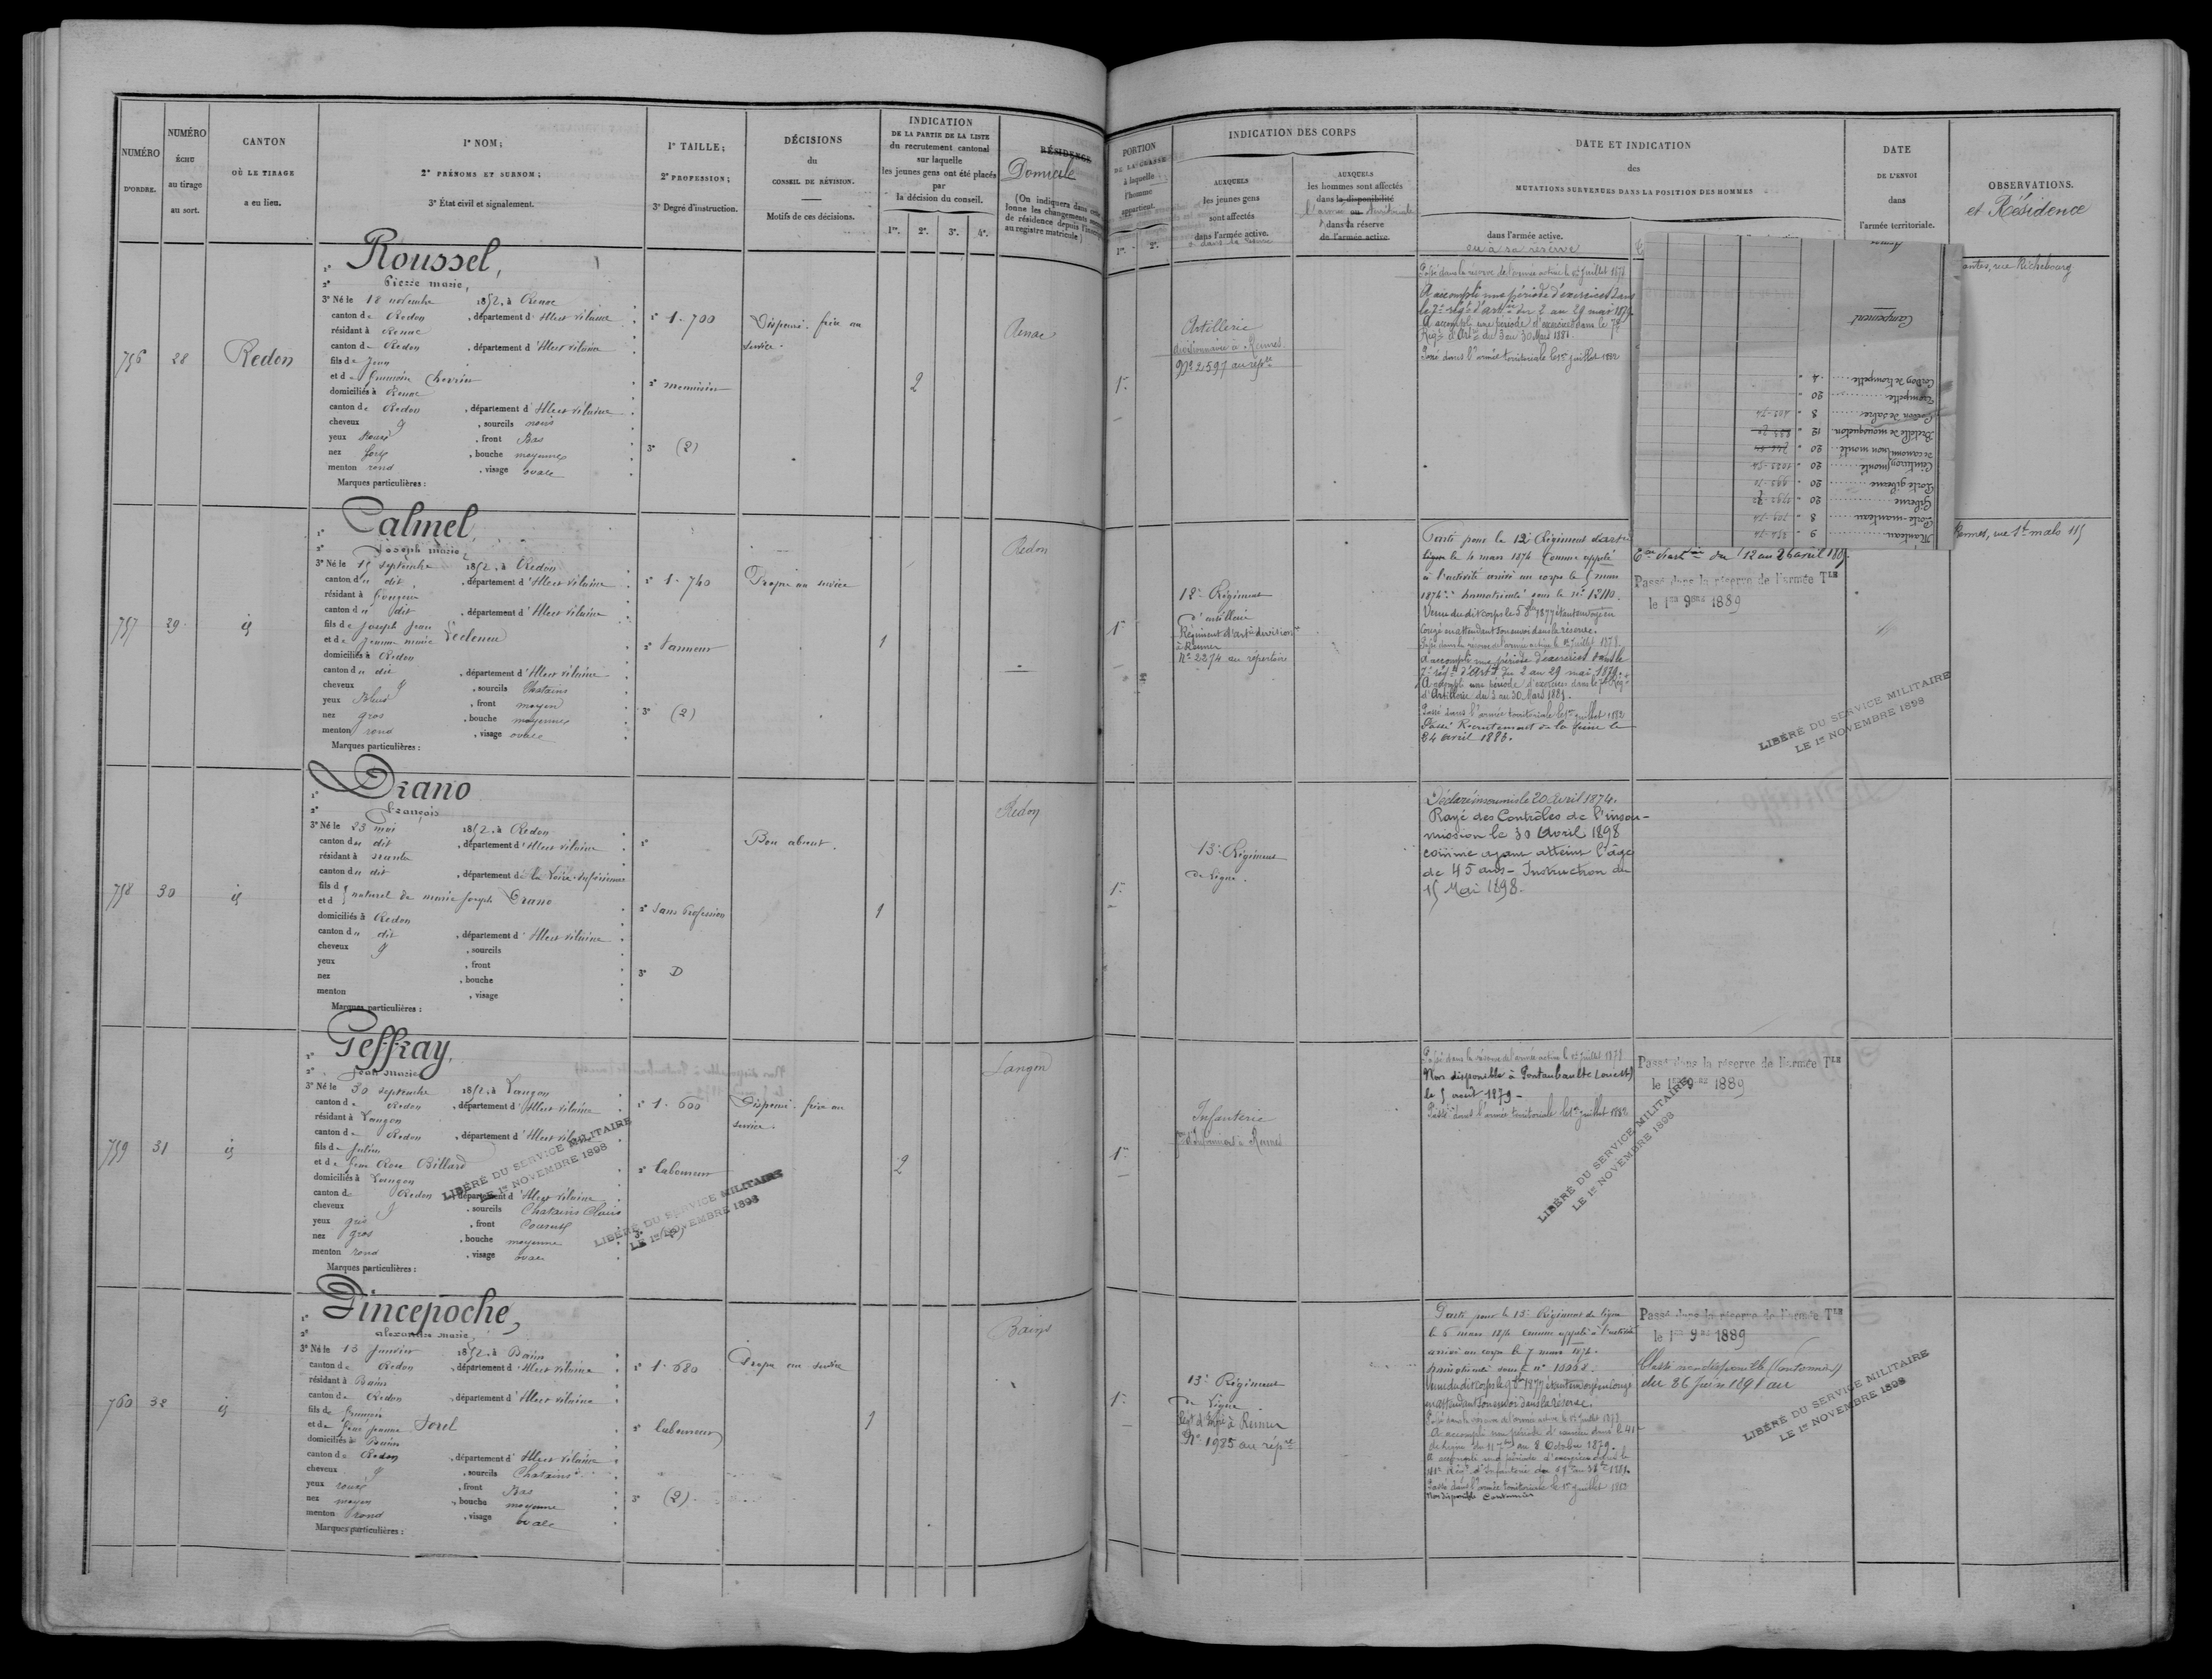 NUMÉRO
D'ORDRE.
NUMÉRO
ÉCHU
au tirage
au sort.
CANTON
OÙ LE TIRAGE
a eu lieu.
1° NOM;
2° PRÉNOMS ET SURNOM;
3° État civil et signalement.
1° TAILLE;
2° PROFESSION;
3° Degré d'instruction.
DÉCISIONS
du
CONSEIL DE RÉVISION.
Motifs de ces décisions.
INDICATION
DE LA PARTIE DE LA LISTE
du recrutement cantonal
sur laquelle
les jeunes gens ont été placés
par
la décision du conseil.
1re. 2e. 3e. 4e.
RÉSIDENCE
Domicile
(On indiquera dans cette
lonne les changements
de résidence depuis
au registre matricule)
756
28
Redon
1° Roussel,
2° Pierre marie,
3° Né le 18 novembre 1852, à Renac
canton de Redon, département d'Ille et vilaine
résidant à Renac
canton de Redon, département d'Ille et vilaine
fils de Jean
et de
domiciliés à Renac
canton de Redon, département d'Ille et vilaine
cheveux, sourcils noirs
yeux, front Bas
nez fort, bouche moyenne
menton rond, visage ovale
Marques particulières :
1° 1.700
2° menuisier
3° (2)
Dispensé. frère au
service.
2
Renac
757
29
id
1° Calmel,
2° Joseph marie,
3° Né le 15 septembre 1852, à Redon
canton du dit, département d'Ille et vilaine
résidant à
canton du dit, département d'Ille et vilaine
fils de Joseph Jean
et de Jeanne marie
domiciliés à Redon
canton du dit, département d'Ille et vilaine
cheveux, sourcils Chatains
yeux Bleus, front moyen
nez gros, bouche moyenne
menton rond, visage ovale
Marques particulières :
1° 1.740
2° tanneur
3° (2)
Propre au service
1
Redon
758
30
id
1° Drano
2° François
3° Né le 23 mai 1852, à Redon
canton du dit, département d'Ille et vilaine
résidant à nantes
canton du dit, département de la Loire-Inférieure
fils d
et d naturel de marie Joseph Drano
domiciliés à Redon
canton du dit, département d'Ille et vilaine
cheveux, sourcils
yeux, front
nez, bouche
menton, visage
Marques particulières :
1°
2° Sans Profession
3° D
Bon absent.
1
Redon
759
31
id
1° Geffray,
2° Jean marie
3° Né le 30 septembre 1852, à Langon
canton de Redon, département d'Ille et vilaine
résidant à Langon
canton de Redon, département d'Ille et vilaine
fils de Julien
et de Rose Billard
domiciliés à Langon
canton de Redon, département d'Ille et vilaine
cheveux, sourcils Chatains Clairs
yeux gris, front Couvert
nez gros, bouche moyenne
menton rond, visage ovale
Marques particulières :
LIBÉRÉ DU SERVICE MILITAIRE
LE 1er NOVEMBRE 1898
1° 1.600
2° laboureur
3° (2)
LIBÉRÉ DU SERVICE MILITAIRE
LE 1er NOVEMBRE 1898
Dispensé. frère au
service.
2
Langon
760
32
id
1° Dincepoche,
2° alexandre marie,
3° Né le 13 Janvier 1852, à Bains
canton de Redon, département d'Ille et vilaine
résidant à Bains
canton de Redon, département d'Ille et vilaine
fils de françois
et de Jeanne Sorel
domiciliés à Bains
canton de Redon, département d'Ille et vilaine
cheveux, sourcils Chatains
yeux roux, front Bas
nez moyen, bouche moyenne
menton rond, visage ovale
Marques particulières :
1° 1.680
2° laboureur
3° (2)
Propre au service
1
Bains
PORTION
DE LA CLASSE
à laquelle
l'homme
appartient.
1re. 2e.
INDICATION DES CORPS
AUXQUELS
les jeunes gens
sont affectés
dans l'armée active.
AUXQUELS
les hommes sont affectés
dans la disponibilité
dans la réserve
de l'armée active.
DATE ET INDICATION
des
MUTATIONS SURVENUES DANS LA POSITION DES HOMMES
dans l'armée active.
ou à sa réserve
DATE
DE L'ENVOI
dans
l'armée territoriale.
OBSERVATIONS.
et Résidence
1re
Artillerie
divisionnaire à Rennes
No 2597 au répre
Passé dans la réserve de l'armée active le 1er Juillet 1878
A accompli une période d'exercices dans
le 7e régt d'artie du 2 au 29 mai 1879.
A accompli une période d'exercices dans le 7e
Régt d'Artie du 3 au 30 Mars 1881.
Passé dans l'armée territoriale le 1er juillet 1882
rue Richebourg
Campement
Cordon de trompette 4
Trompette 20
Cordon de sabre 8
Bretelle de mousqueton 12
de canonnier non monté 20
Ceinturon monté 20
Porte giberne 20
Giberne 20
Porte-manteau 8
Manteau 9
1re
12e Régiment
d'artillerie
Régiment d'artie division
à Rennes
No 2274 au répertoire
Parti pour le 12e Régiment d'art
ligne le 4 mars 1874 Comme appelé
à l'activité arrivé au corps le 5 mars
1874. Immatriculé sous le No 1210.
Venu du dit corps le 5 1877 étant envoyé en
Congé en attendant son envoi dans la réserve.
Passé dans la réserve de l'armée active le 1er Juillet 1878.
A accompli une période d'exercices dans le
7e régt d'Artie du 2 au 29 mai 1879.
A accompli une période d'exercices dans le 7e Régt
d'Artillerie du 3 au 30 Mars 1881.
Passé dans l'armée territoriale le 1er juillet 1882
Passé Recrutement de la Seine le
24 avril 1886.
du 12 au 26 avril
Passé dans la réserve de l'armée Tle
le 1er 9bre 1889
LIBÉRÉ DU SERVICE MILITAIRE
LE 1er NOVEMBRE 1898
Rennes, rue St malo 115
1re
13e Régiment
de Ligne.
Déclaré insoumis le 20 Avril 1874.
Rayé des Contrôles de l'insou-
mission le 30 Avril 1898
comme ayant atteint l'âge
de 45 ans - Instruction du
15 Mai 1898.
1re
Infanterie
d'Infanterie à Rennes
Passé dans la réserve de l'armée active le 1er Juillet 1878
Non disponible à Pontaubault (ouest)
le 5 août 1879 -
Passé dans l'armée territoriale le 1er juillet 1882
Passé dans la réserve de l'armée Tle
le 1er 9bre 1889
LIBÉRÉ DU SERVICE MILITAIRE
LE 1er NOVEMBRE 1898
1re
13e Régiment
de Ligne
Régt d'Infie à Rennes
No 1985 au répre
Parti pour le 13e Régiment de ligne
le 6 mars 1874 comme appelé à l'activité
arrivé au corps le 7 mars 1874.
Immatriculé sous le no 10098.
Venu du dit corps le 1877 étant envoyé en congé
en attendant son envoi dans la réserve.
Passé dans la réserve de l'armée active le 1er Juillet 1878
A accompli une période d'exercices dans le 41e
de Ligne du 11 7bre au 8 Octobre 1879.
A accompli une période d'exercices dans le
Régt d'Infanterie du 1881.
Passé dans l'armée territoriale le 1er Juillet 1882
Non disponible Cantonnier
Passé dans la réserve de l'armée Tle
le 1er 9bre 1889
Classé non disponible (Cantonnier)
du 26 Juin 1891 au
LIBÉRÉ DU SERVICE MILITAIRE
LE 1er NOVEMBRE 1898